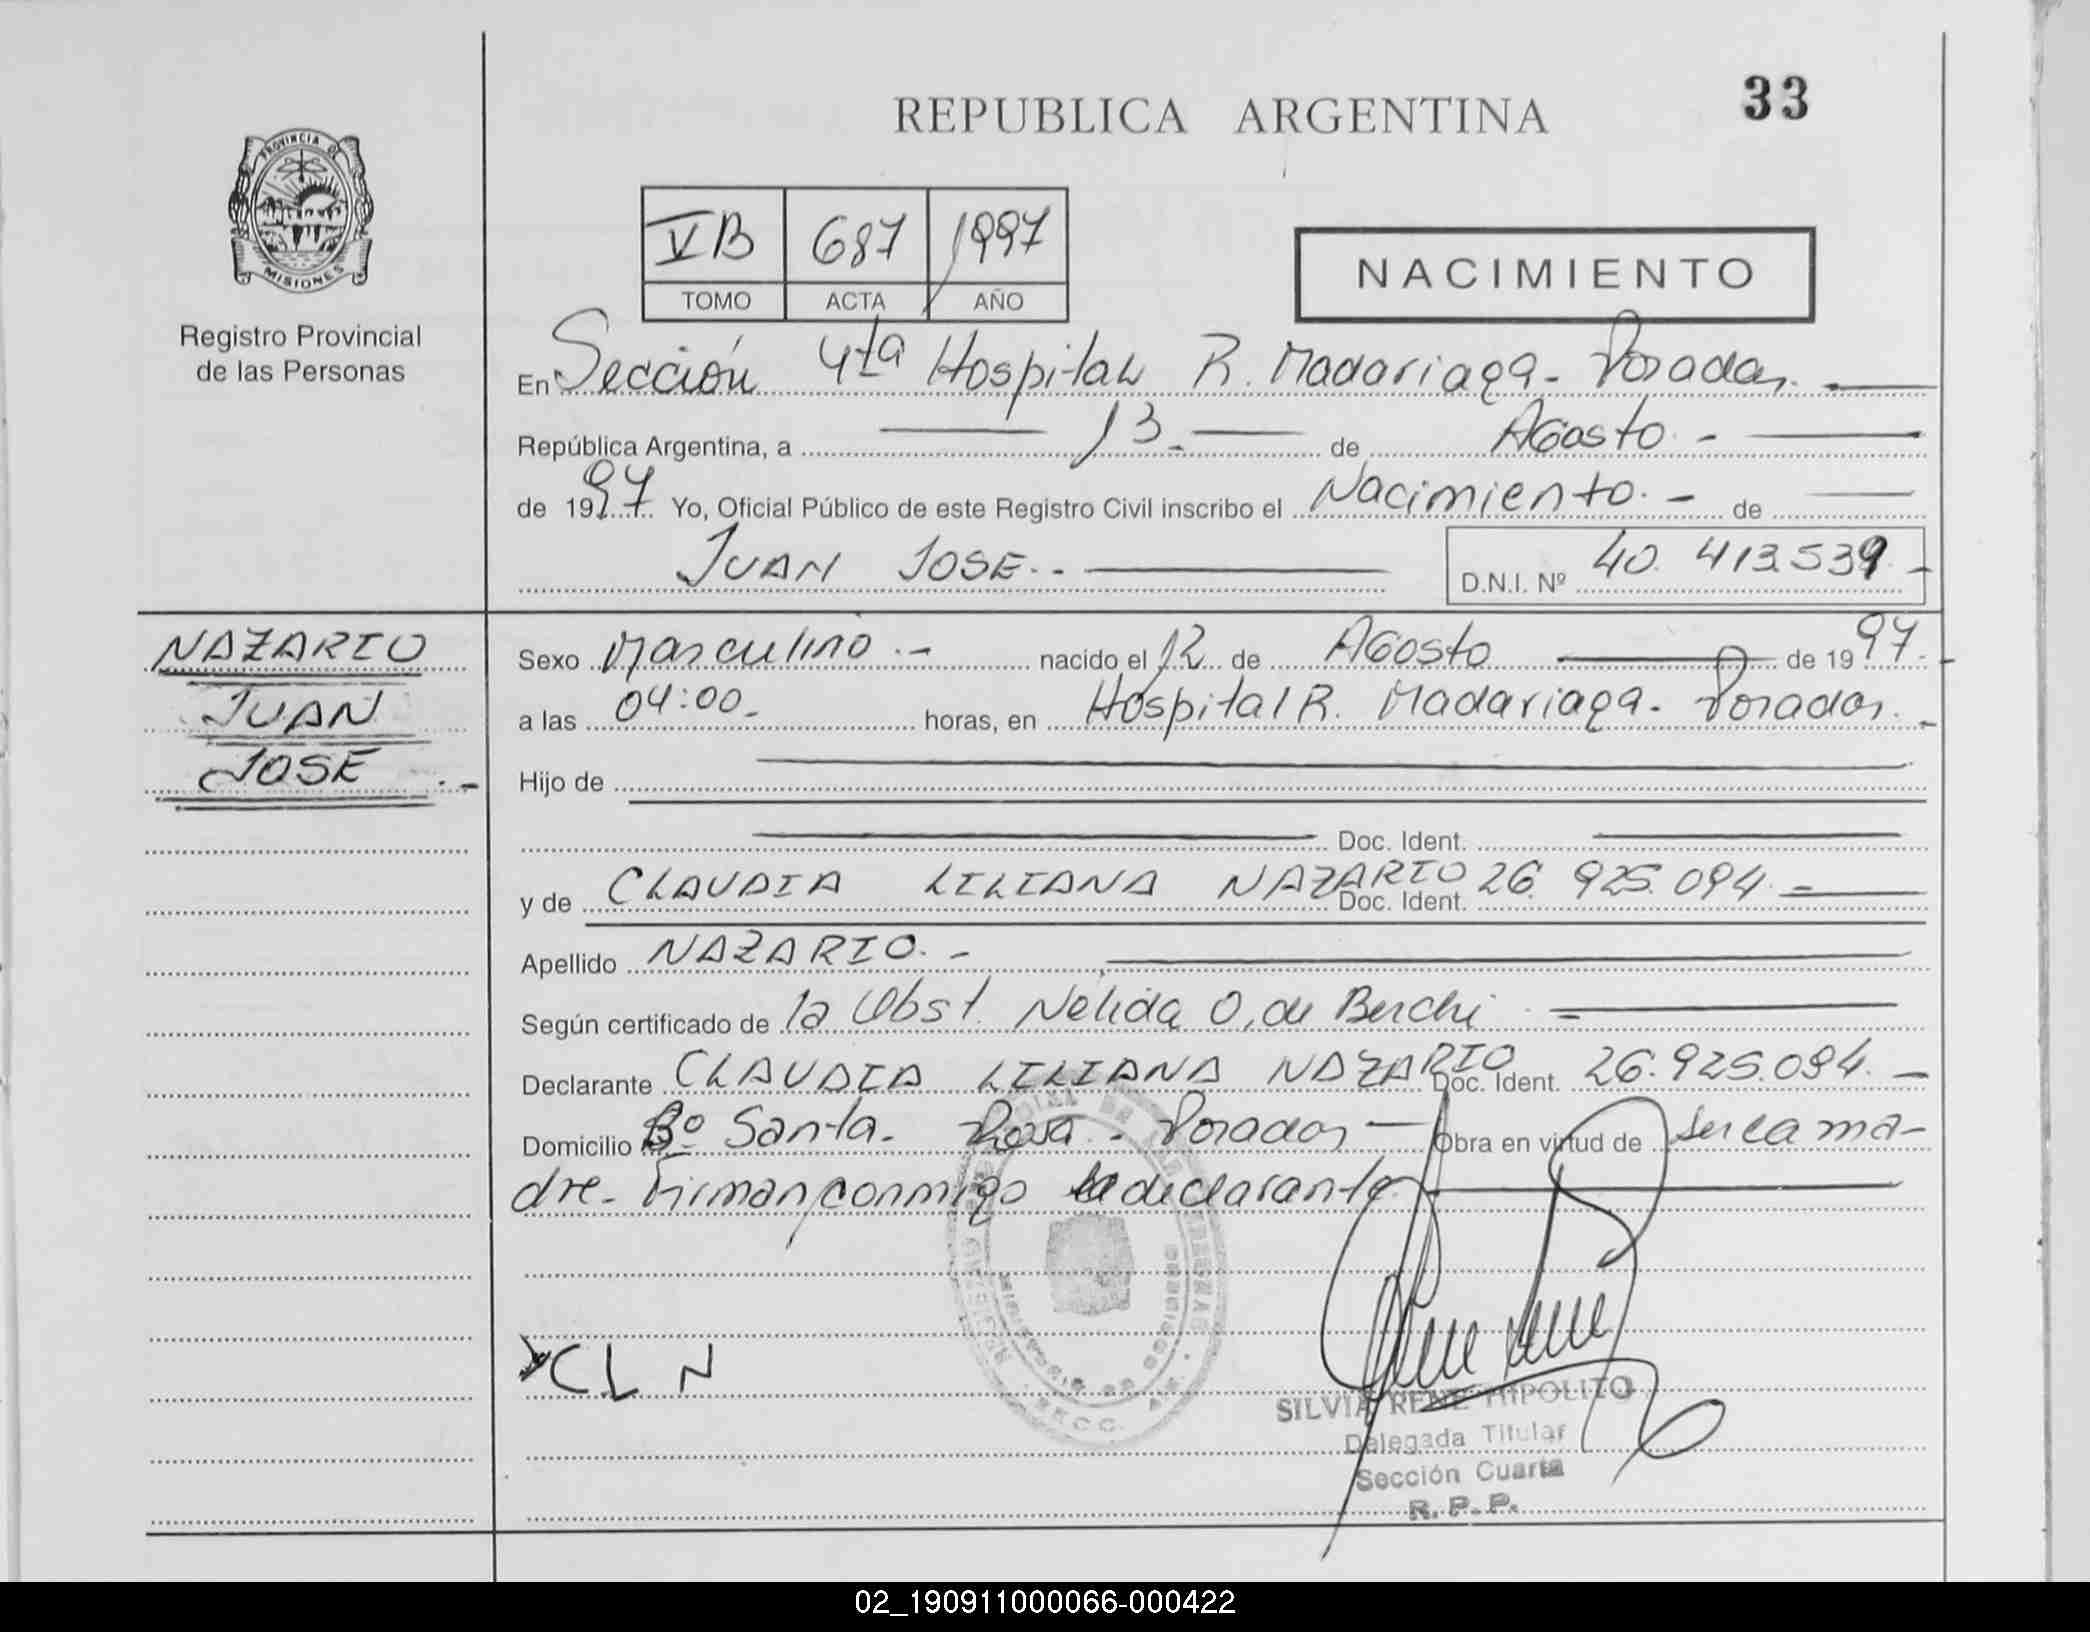 33
REPUBLICA ARGENTINA
PROVINCIA DE
MISIONES
Registro Provincial
de las Personas
VB 687 1997
TOMO ACTA AÑO
NACIMIENTO
En Sección 4ta Hospital R. Madariaga - Posadas. -
República Argentina, a 13.- de Agosto. -
de 1997 Yo, Oficial Público de este Registro Civil inscribo el Nacimiento. - de
JUAN JOSE. - D.N.I. Nº 40.413.539 -
NAZARIO
JUAN
JOSE .-
Sexo Masculino .- nacido el 12 de Agosto de 1997. -
a las 04:00.- horas, en Hospital R. Madariaga - Posadas. -
Hijo de
Doc. Ident.
y de CLAUDIA LILIANA NAZARIO Doc. Ident. 26.925.094. -
Apellido NAZARIO. -
Según certificado de la Obst. Nélida O. de Berchi -
Declarante CLAUDIA LILIANA NAZARIO Doc. Ident. 26.925.094. -
Domicilio Bº Santa Rosa - Posadas - Obra en virtud de ser la ma-
dre - Firman conmigo la declarante
CLN
SILVIA RENE HIPOLITO
Delegada Titular
Sección Cuarta
R.P.P.
02_190911000066-000422